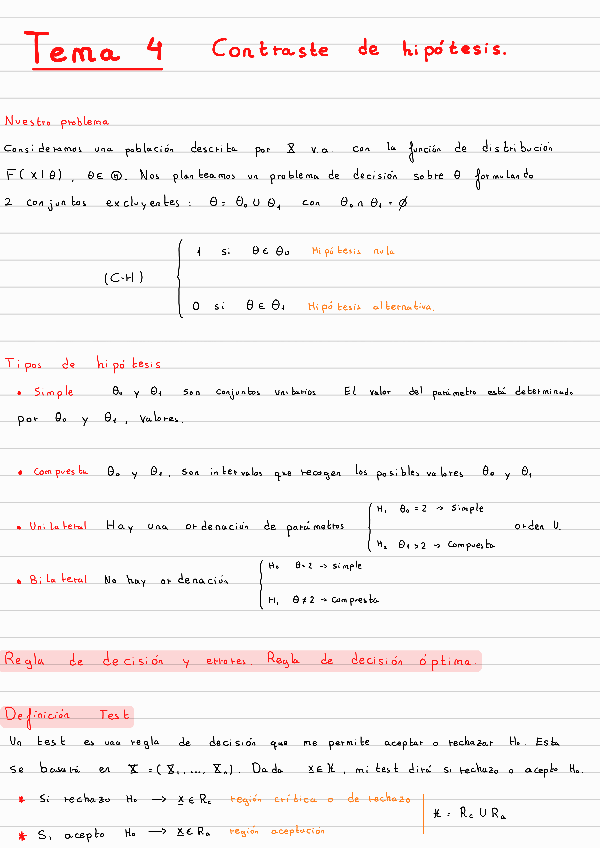 Tema 4 Contraste de hipótesis.
Nuestro problema
Consideramos una población descrita por X v.a. con la función de distribución
F(x|θ), θ ∈ Θ. Nos planteamos un problema de decisión sobre θ formulando
2 conjuntos excluyentes: Θ = Θ₀ ∪ Θ₁ con Θ₀ ∩ Θ₁ = ∅
1 si θ ∈ Θ₀ Hipótesis nula
(C·H)
0 si θ ∈ Θ₁ Hipótesis alternativa.
Tipos de hipótesis
• Simple Θ₀ y Θ₁ son conjuntos unitarios El valor del parámetro está determinado
por Θ₀ y Θ₁, valores.
• Compuesta Θ₀ y Θ₁, son intervalos que recogen los posibles valores Θ₀ y Θ₁
H₁ θ₀ = 2 → Simple
• Unilateral Hay una ordenación de parámetros orden U.
H₂ θ₁ > 2 → Compuesta
H₀ θ = 2 → simple
• Bilateral No hay ordenación
H₁ θ ≠ 2 → compuesta
Regla de decisión y errores. Regla de decisión óptima.
Definición Test
Un test es una regla de decisión que me permite aceptar o rechazar H₀. Esta
se basará en X = (X₁, ..., Xₙ). Dada x ∈ 𝒳, mi test dirá si rechazo o acepto H₀.
* Si rechazo H₀ → x ∈ Rc región crítica o de rechazo
𝒳 = Rc ∪ Ra
* Si acepto H₀ → x ∈ Ra región aceptación